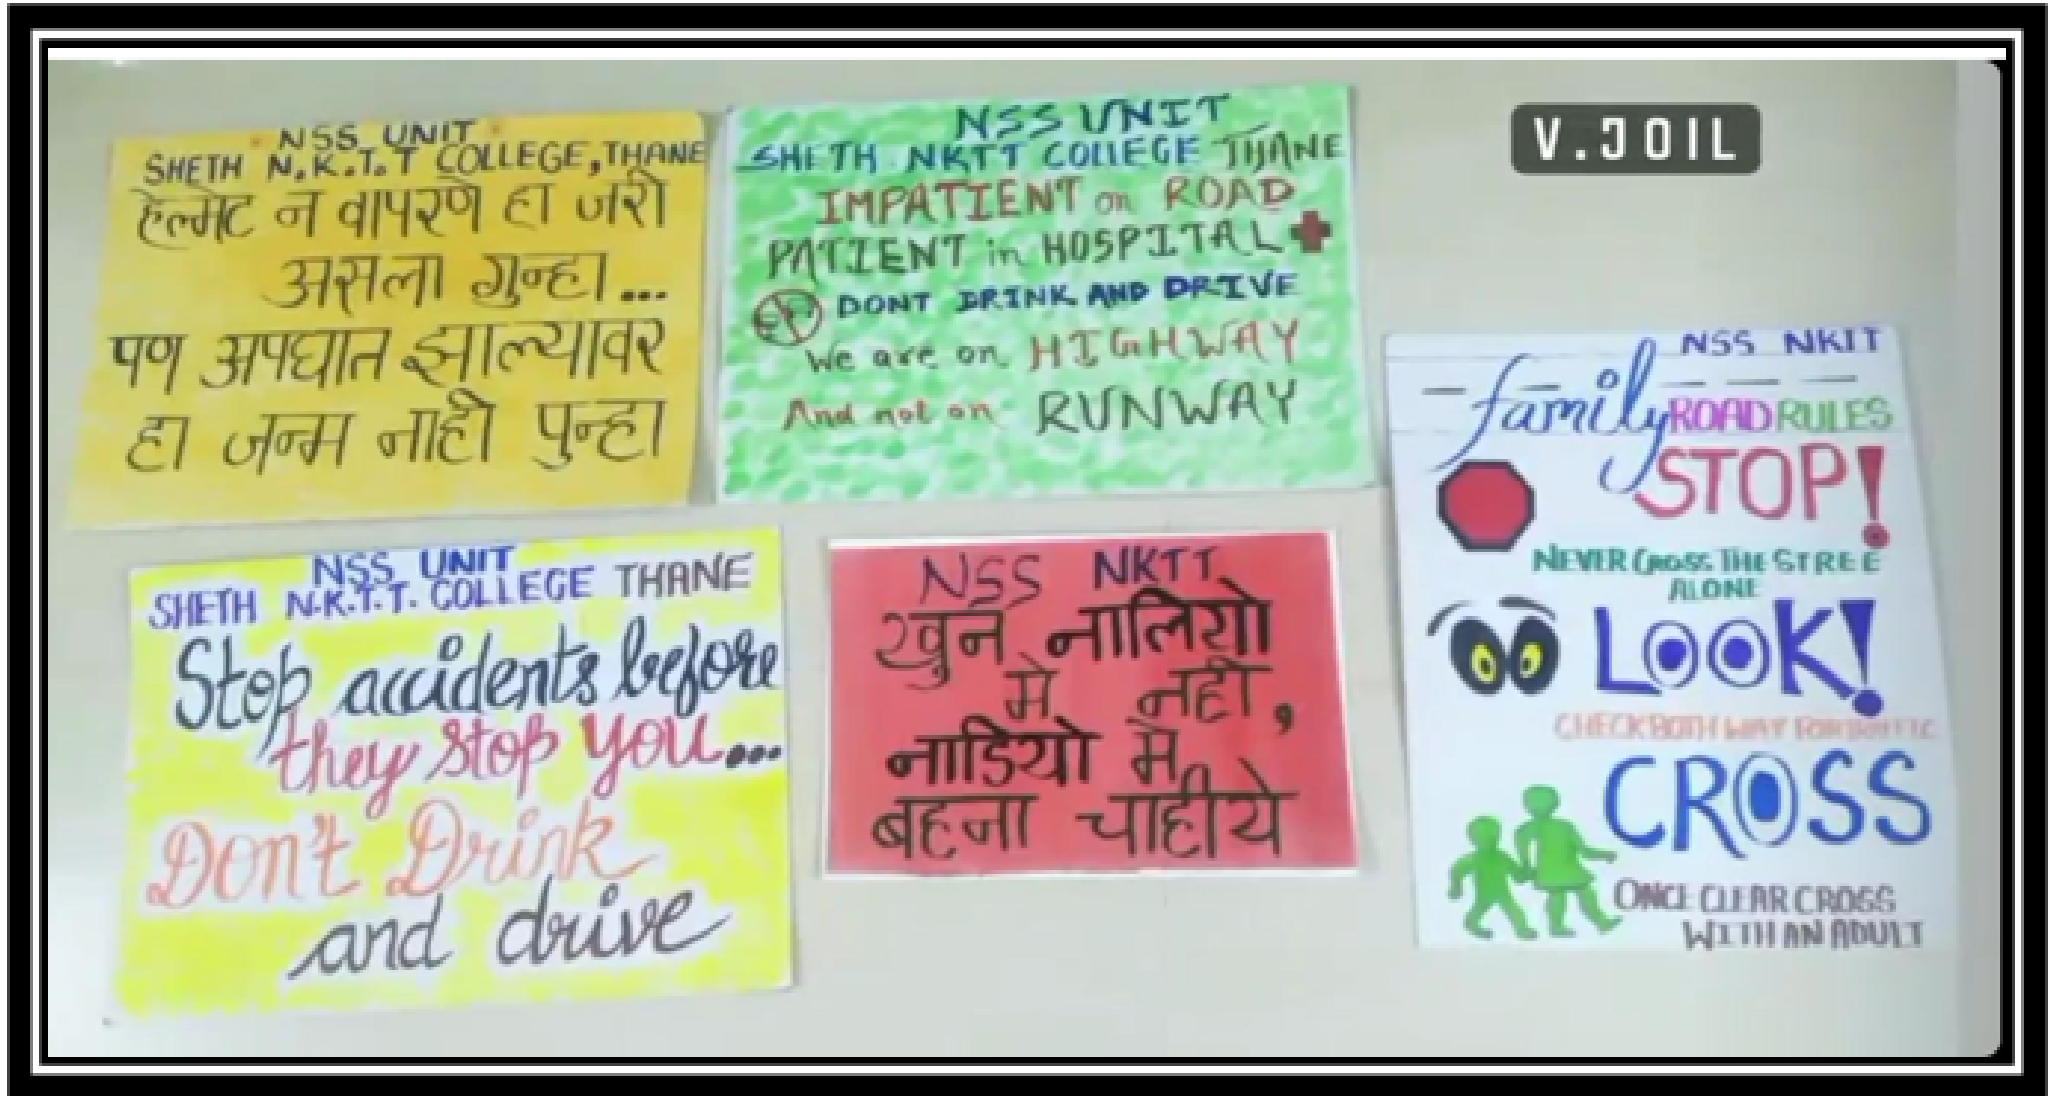 NSS UNIT
SHETH N.K.T.T COLLEGE, THANE
हेल्मेट न वापरणे हा जरी
असला गुन्हा...
पण अपघात झाल्यावर
हा जन्म नाही पुन्हा
NSS UNIT
SHETH NKTT COLLEGE THANE
IMPATIENT on ROAD
PATIENT in HOSPITAL
DONT DRINK AND DRIVE
We are on HIGHWAY
And not on RUNWAY
V.JOIL
NSS UNIT
SHETH N.K.T.T. COLLEGE THANE
Stop accidents before
they stop you...
Don't Drink
and drive
NSS NKTT
खुन नालियो
मे नही,
नाडियो मे
बहना चाहीये
NSS NKTT
family ROAD RULES
STOP!
NEVER CROSS THE STREE
ALONE
LOOK!
CHECK BOTH WAY FOR TRAFFIC
CROSS
ONCE CLEAR CROSS
WITH AN ADULT